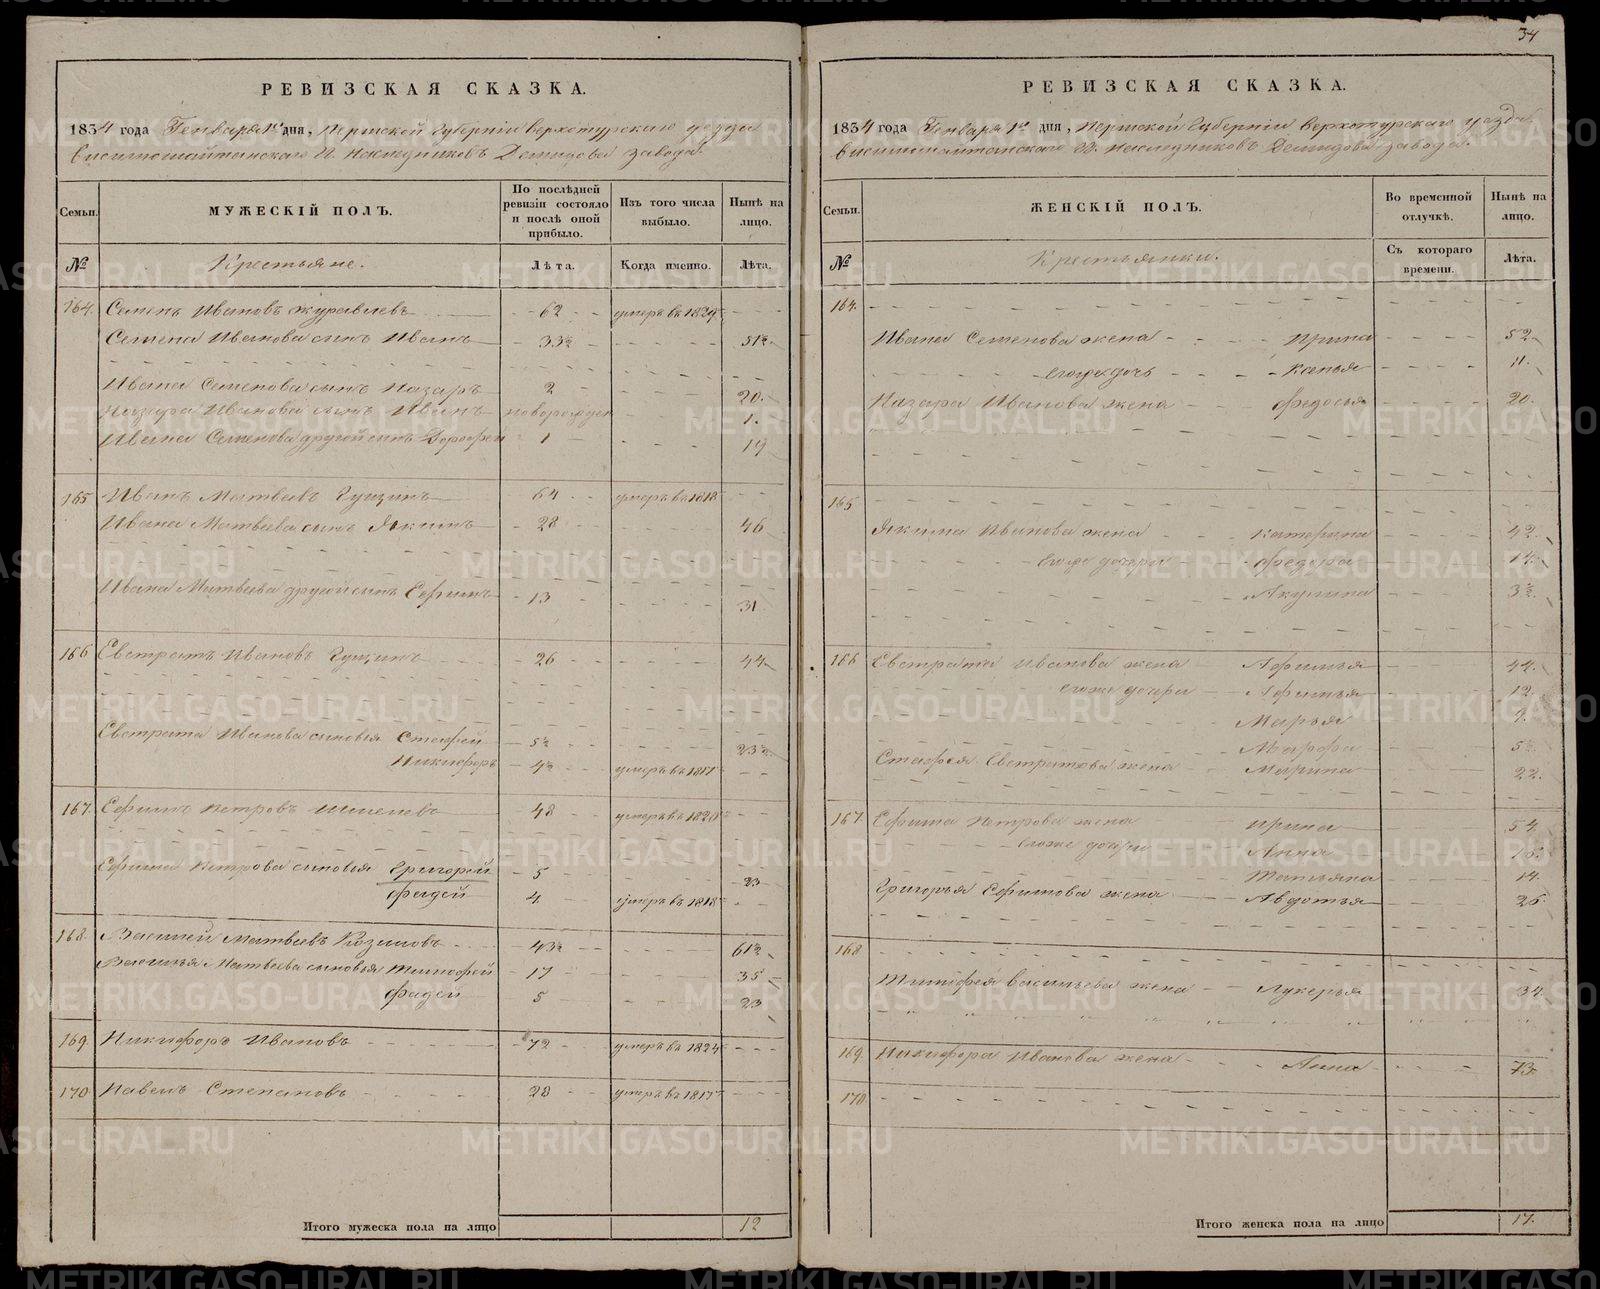 34
РЕВИЗСКАЯ СКАЗКА.
1834 года Генваря 1го дня, Пермской Губернiи верхотурскаго уезда
висимошайтанскаго Н. наследниковъ Демидова завода.
Семьи.
МУЖЕСКIЙ ПОЛЪ.
По послѣдней ревизiи состояло и послѣ оной прибыло.
Изъ того числа выбыло.
Нынѣ на лицо.
№
Крестьяне.
Лѣта.
Когда именно.
Лѣта.
164. Семенъ Ивановъ журавлевъ 62 умеръ въ 1829
Семена Иванова сынъ Иванъ 33½ 51½
Ивана Семенова сынъ Назаръ 2 20.
Назара Иванова сынъ Иванъ новорожден 1.
Ивана Семенова другой сынъ Дорофей 1 19
165 Иванъ Матвеевъ Гущинъ 64 умеръ въ 1818
Ивана Матвеева сынъ Якимъ 28 46
Ивана Матвеева другой сынъ Ефимъ 13 31
166 Евстратъ Ивановъ Гущинъ 26 44
Евстрата Иванова сыновья Стафей 5½ 23½
Никифоръ 4½ умеръ въ 1817
167. Ефимъ Петровъ 48 умеръ въ 1820
Ефима Петрова сыновья Григорей 5 23
Фадей 4 умеръ въ 1818
168. Василей Матвеевъ Козминовъ 43½ 61½
Василья Матвеева сыновья Тимофей 17 35
Фадей 5 23
169. Никифоръ Ивановъ 72 умеръ въ 1824
170 Павелъ Степановъ 28 умеръ въ 1817
Итого мужеска пола на лицо 12
РЕВИЗСКАЯ СКАЗКА.
1834 года Генваря 1го дня, Пермской Губернiи верхотурскаго уезда
висимошайтанскаго Н. наследниковъ Демидова завода.
Семьи.
ЖЕНСКIЙ ПОЛЪ.
Во временной отлучкѣ.
Нынѣ на лицо.
№
Крестьянки.
Съ котораго времени.
Лѣта.
164.
Ивана Семенова жена Ирина 52
егоже дочь Капья 11.
Назара Иванова жена Федосья 20
165
Якима Иванова жена Катерина 42.
егоже дочери Федора 14.
Акулина 3½.
166 Евстрата Иванова жена Афимья 44.
егоже дочери Афимья 12
Марья 9.
Марфа 5½
Стафея Евстратова жена Марина 22.
167. Ефима Петрова жена Ирина 54
егоже дочери Анна
Татьяна 14.
Григорья Ефимова жена Авдотья 26
168
Тимофея васильева жена Лукерья 34.
169. Никифора Иванова жена Анна 73.
170.
Итого женска пола на лицо 17.
METRIKI.GASO-URAL.RU